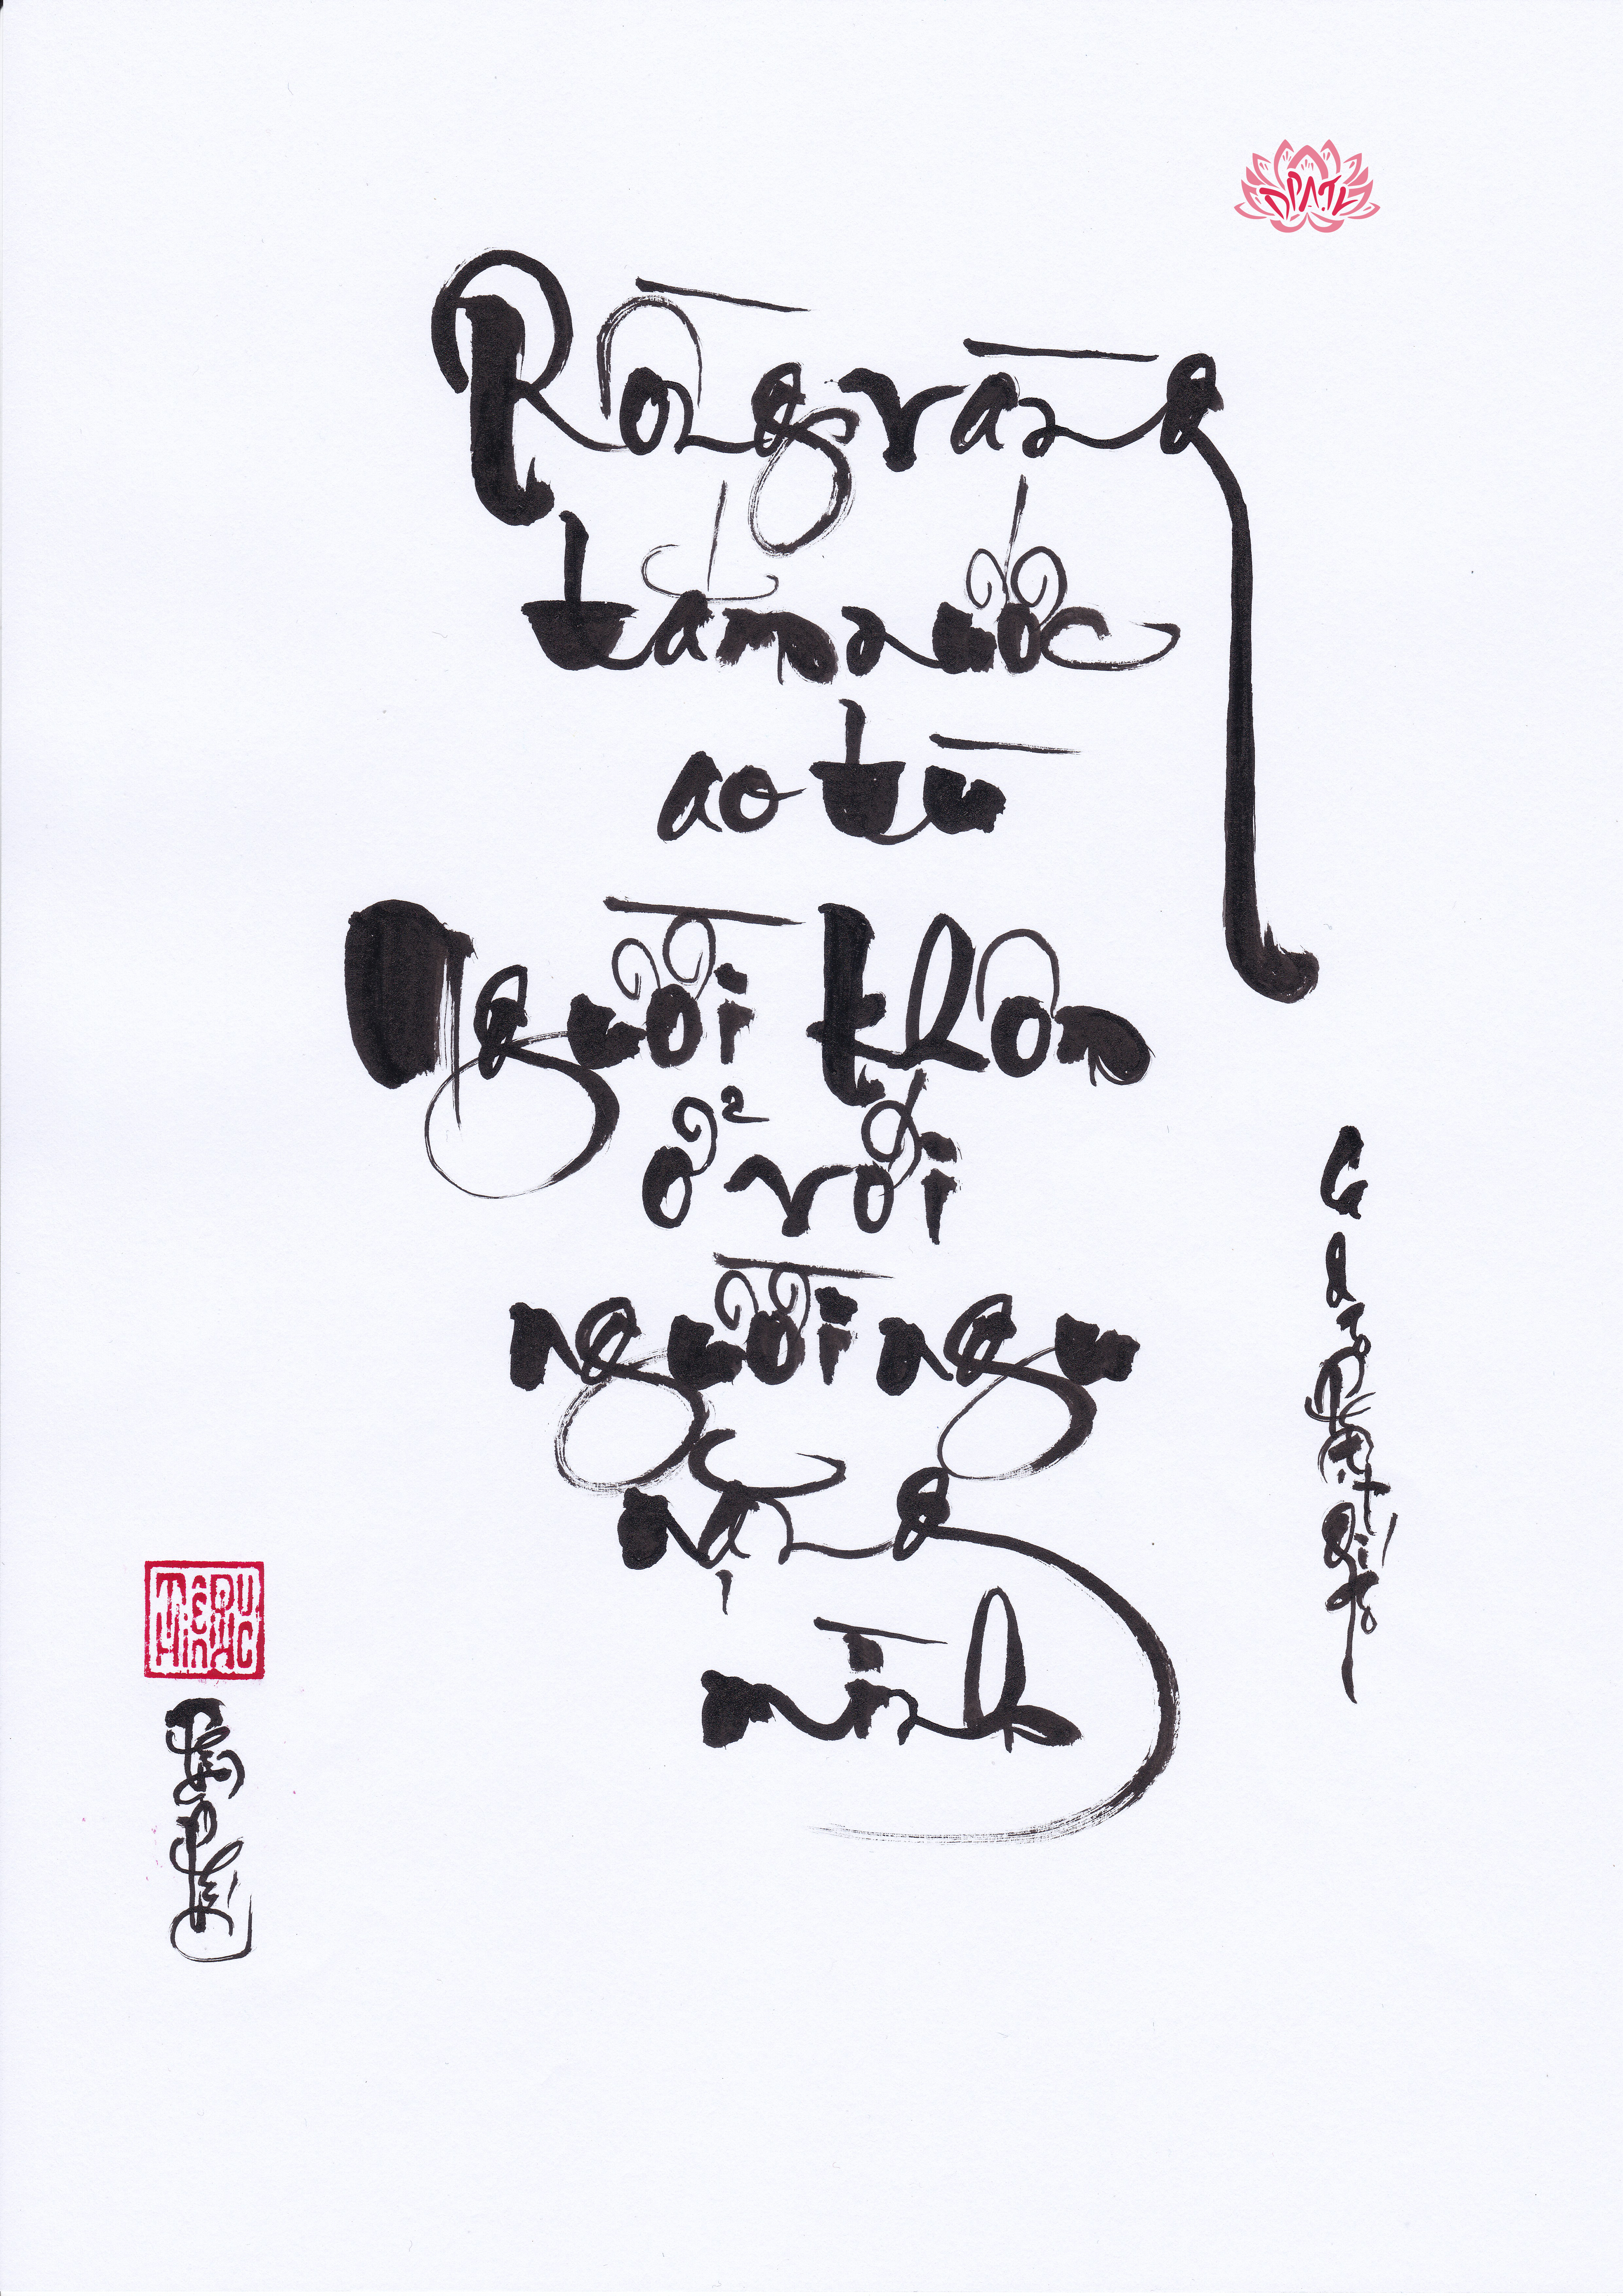 Rồng vàng
tắm nước
ao tù
Người khôn
ở với
người ngu
nặng
mình